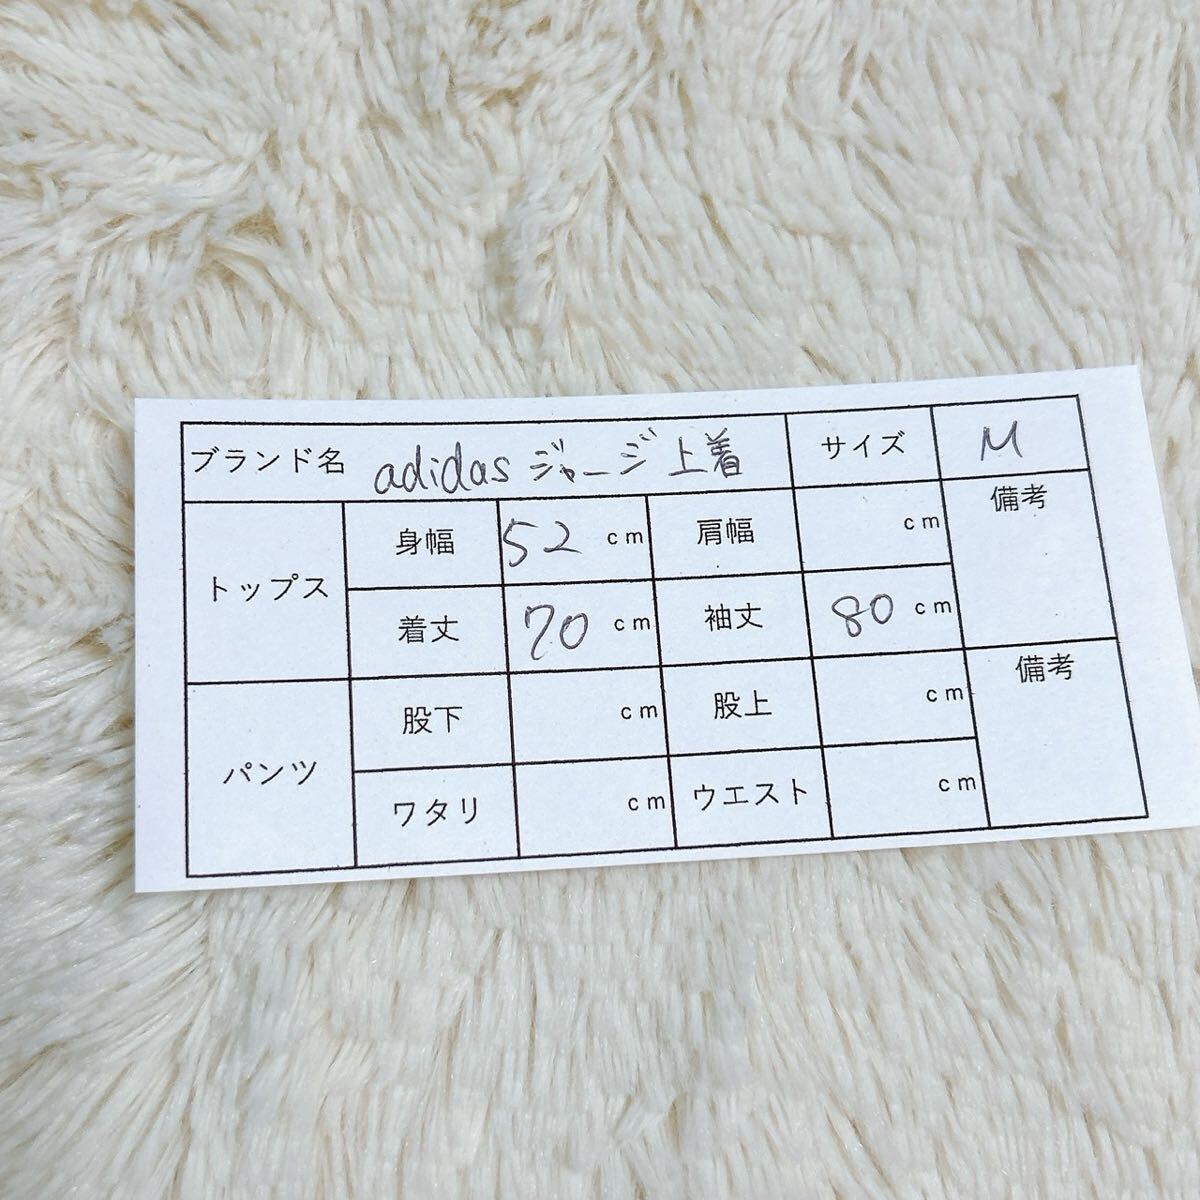 ブランド名 adidas ジャージ 上着 サイズ M
トップス 身幅 52 cm 肩幅 cm 備考
着丈 70 cm 袖丈 80 cm
パンツ 股下 cm 股上 cm 備考
ワタリ cm ウエスト cm